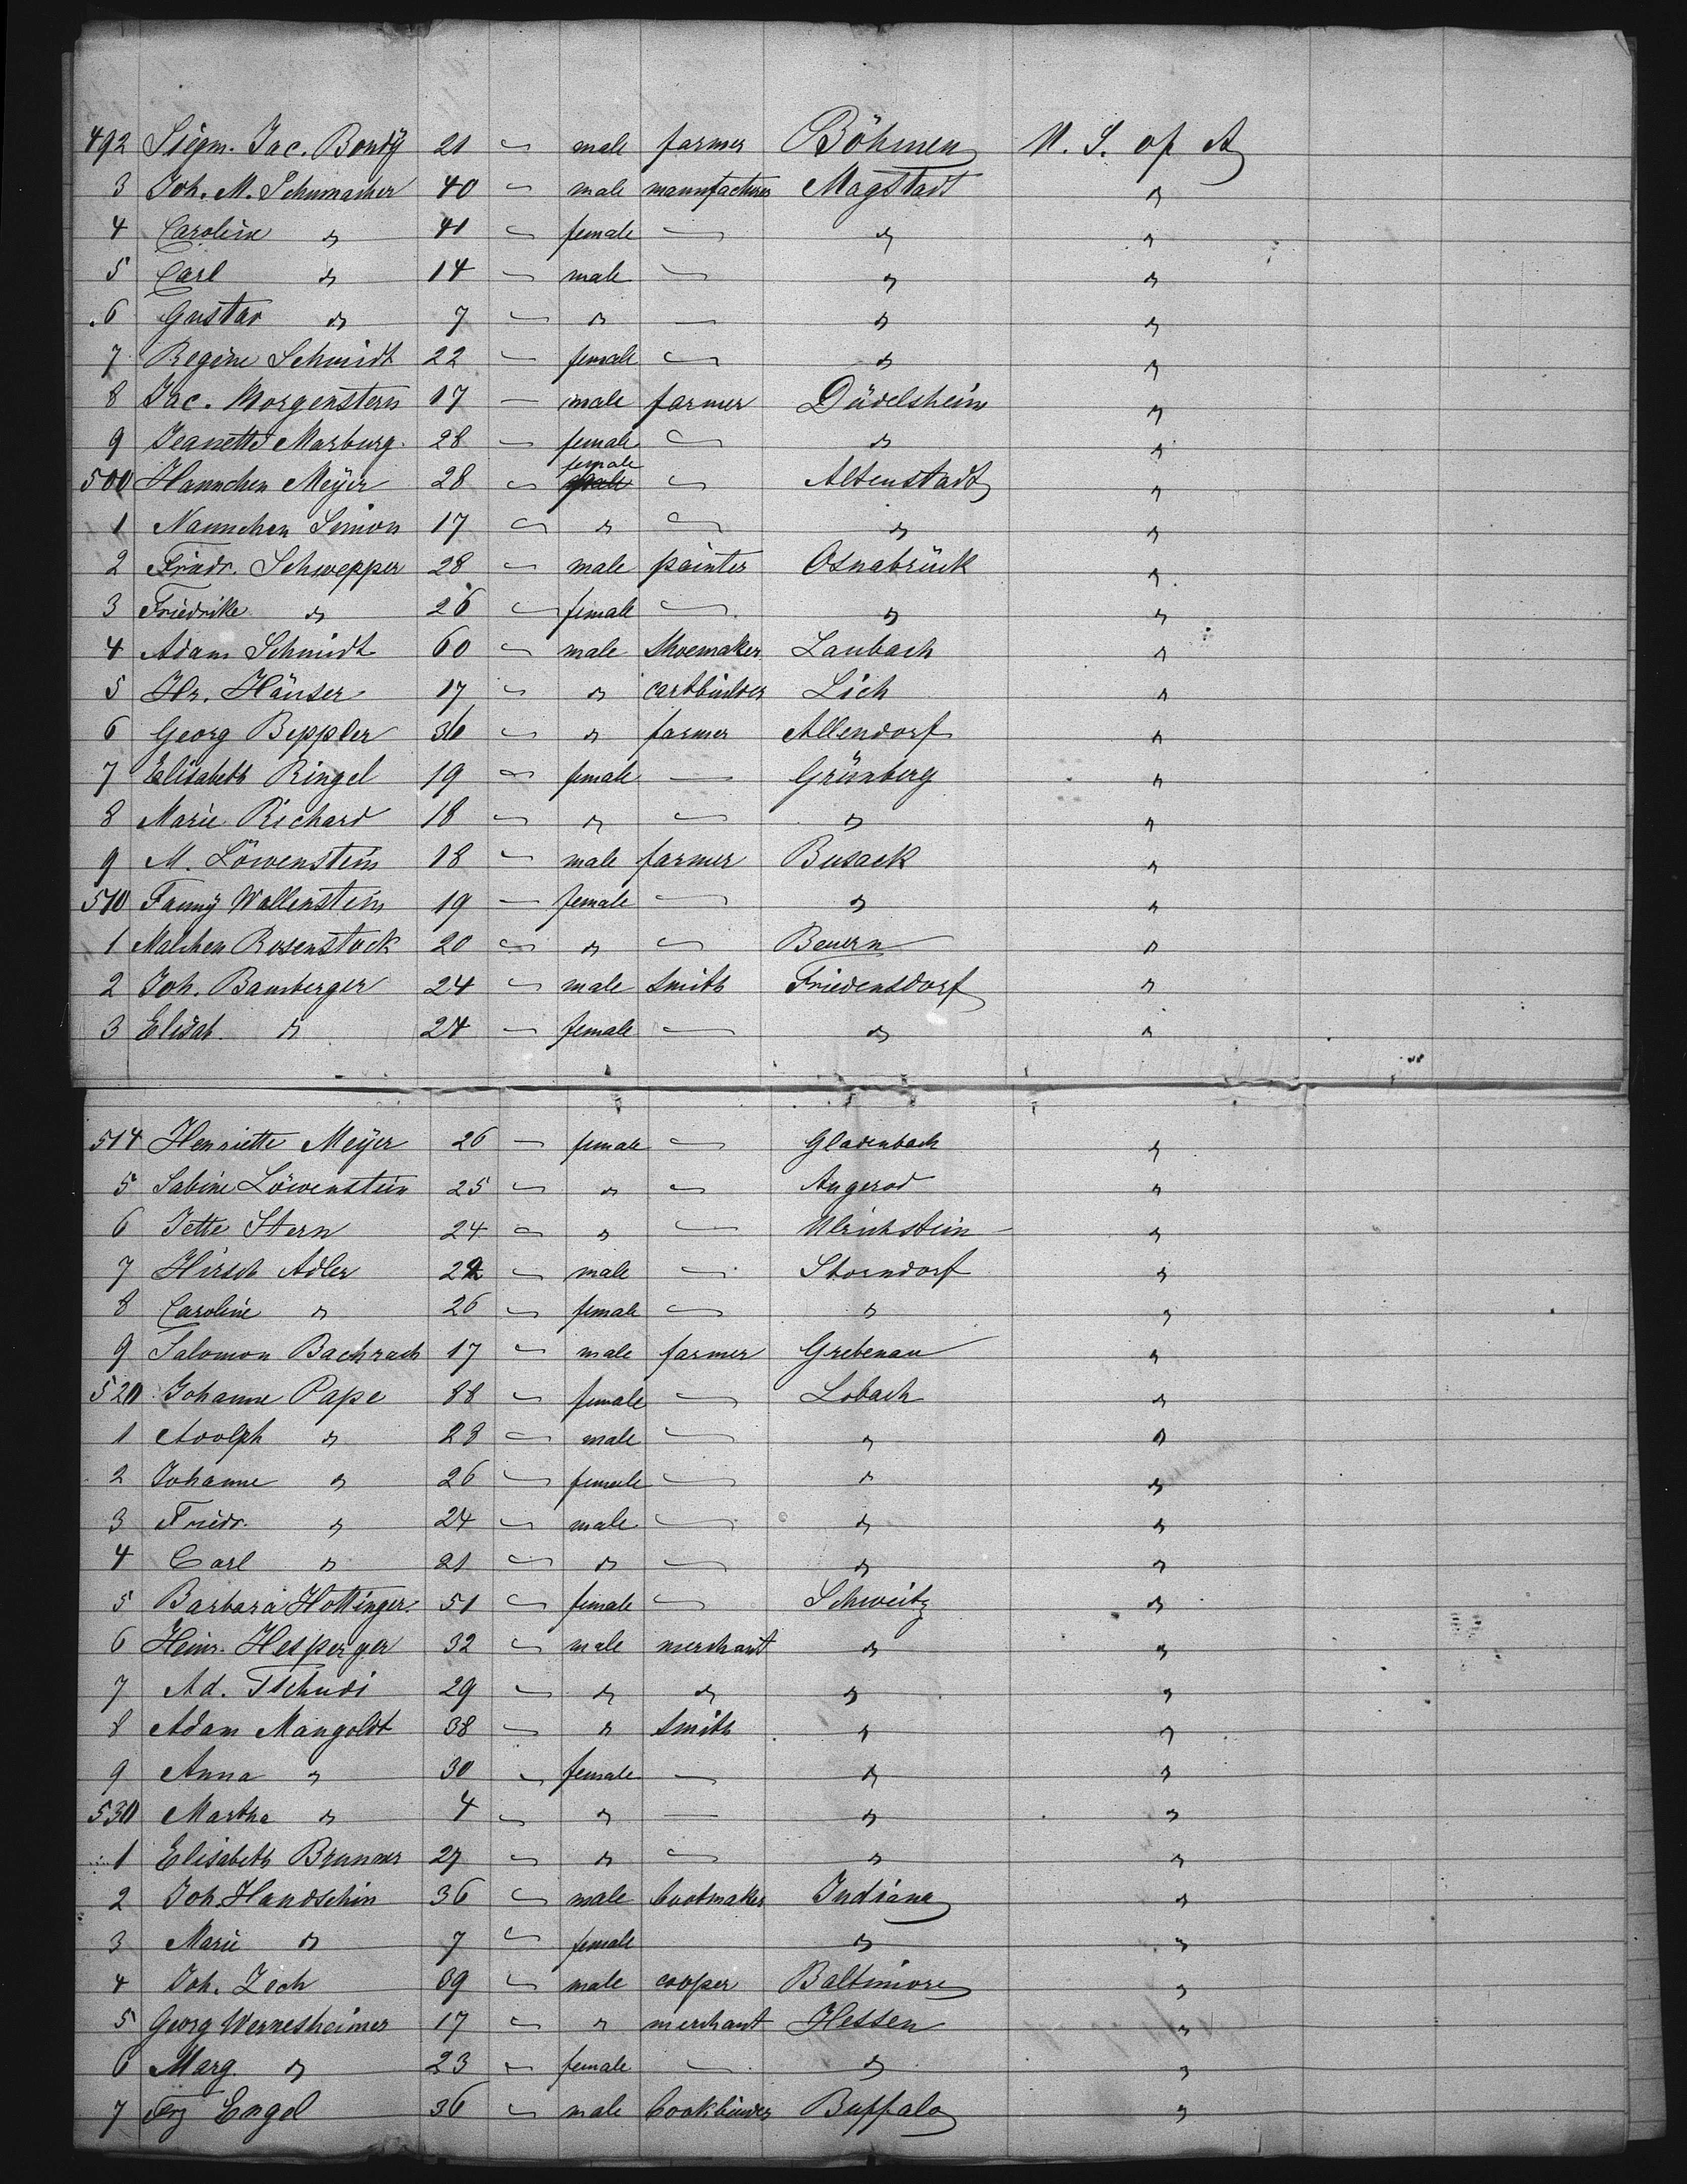 492 Siegm. Jac. Bondÿ 21 — male farmer Böhmen U. S. of A
3 Joh. M. Schumacher 40 — male manufacturer Magstadt "
4 Caroline " 41 — female — " "
5 Carl " 14 — male — " "
6 Gustav " 7 — " — " "
7 Regine Schmidt 22 — female — " "
8 Jac. Morgenstern 17 — male farmer Düdelsheim "
9 Jeanette Marburg. 28 — female — " "
500 Hannchen Meÿer 28 — female — Altenstadt "
1 Nannchen Simon 17 — " — " "
2 Friedr. Schwepper 28 — male painter Osnabrück "
3 Friedrike " 26 — female — " "
4 Adam Schmidt 60 — male shoemaker Laubach "
5 Hr. Häuser 17 — " cartbuilder Lich "
6 Georg Beppler 36 — " farmer Allendorf "
7 Elisabeth Ringel 19 — female — Grünberg "
8 Marie Richard 18 — " — " "
9 M. Löwenstein 18 — male farmer Buseck "
510 Fannÿ Wallenstein 19 — female — " "
1 Malchen Rosenstock 20 — " — Beuern "
2 Joh. Bamberger 24 — male smith Friedensdorf "
3 Elisab. " 24 — female — " "
514 Henriette Meÿer 26 — female — Gladenbach "
5 Sabine Löwenstein 25 — " — Angerod "
6 Jette Stern 24 — " — Ulrichstein "
7 Hirsch Adler 22 — male — Storndorf "
8 Caroline " 26 — female — " "
9 Salomon Bachrach 17 — male farmer Grebenau "
520 Johanne Pape 88 — female — Lobach "
1 Adolph " 28 — male — " "
2 Johanne " 26 — female — " "
3 Friedr. " 24 — male — " "
4 Carl " 21 — " — " "
5 Barbara Hottinger. 51 — female — Schweitz "
6 Heinr. Hesperger 32 — male merchant " "
7 Ad. Tschudi 29 — " " " "
8 Adam Mangoldt 38 — " smith " "
9 Anna " 30 — female — " "
530 Martha " 4 — " — " "
1 Elisabeth Brunner 27 — " — " "
2 Joh. Handschin 36 — male bootmaker Indiana "
3 Marie " 7 — female " "
4 Joh. Zech 39 — male cooper Baltimore "
5 Georg Wernesheimer 17 — " merchant Hessen "
6 Marg. " 23 — female — " "
7 Engel 36 — male bookbinder Buffalo "